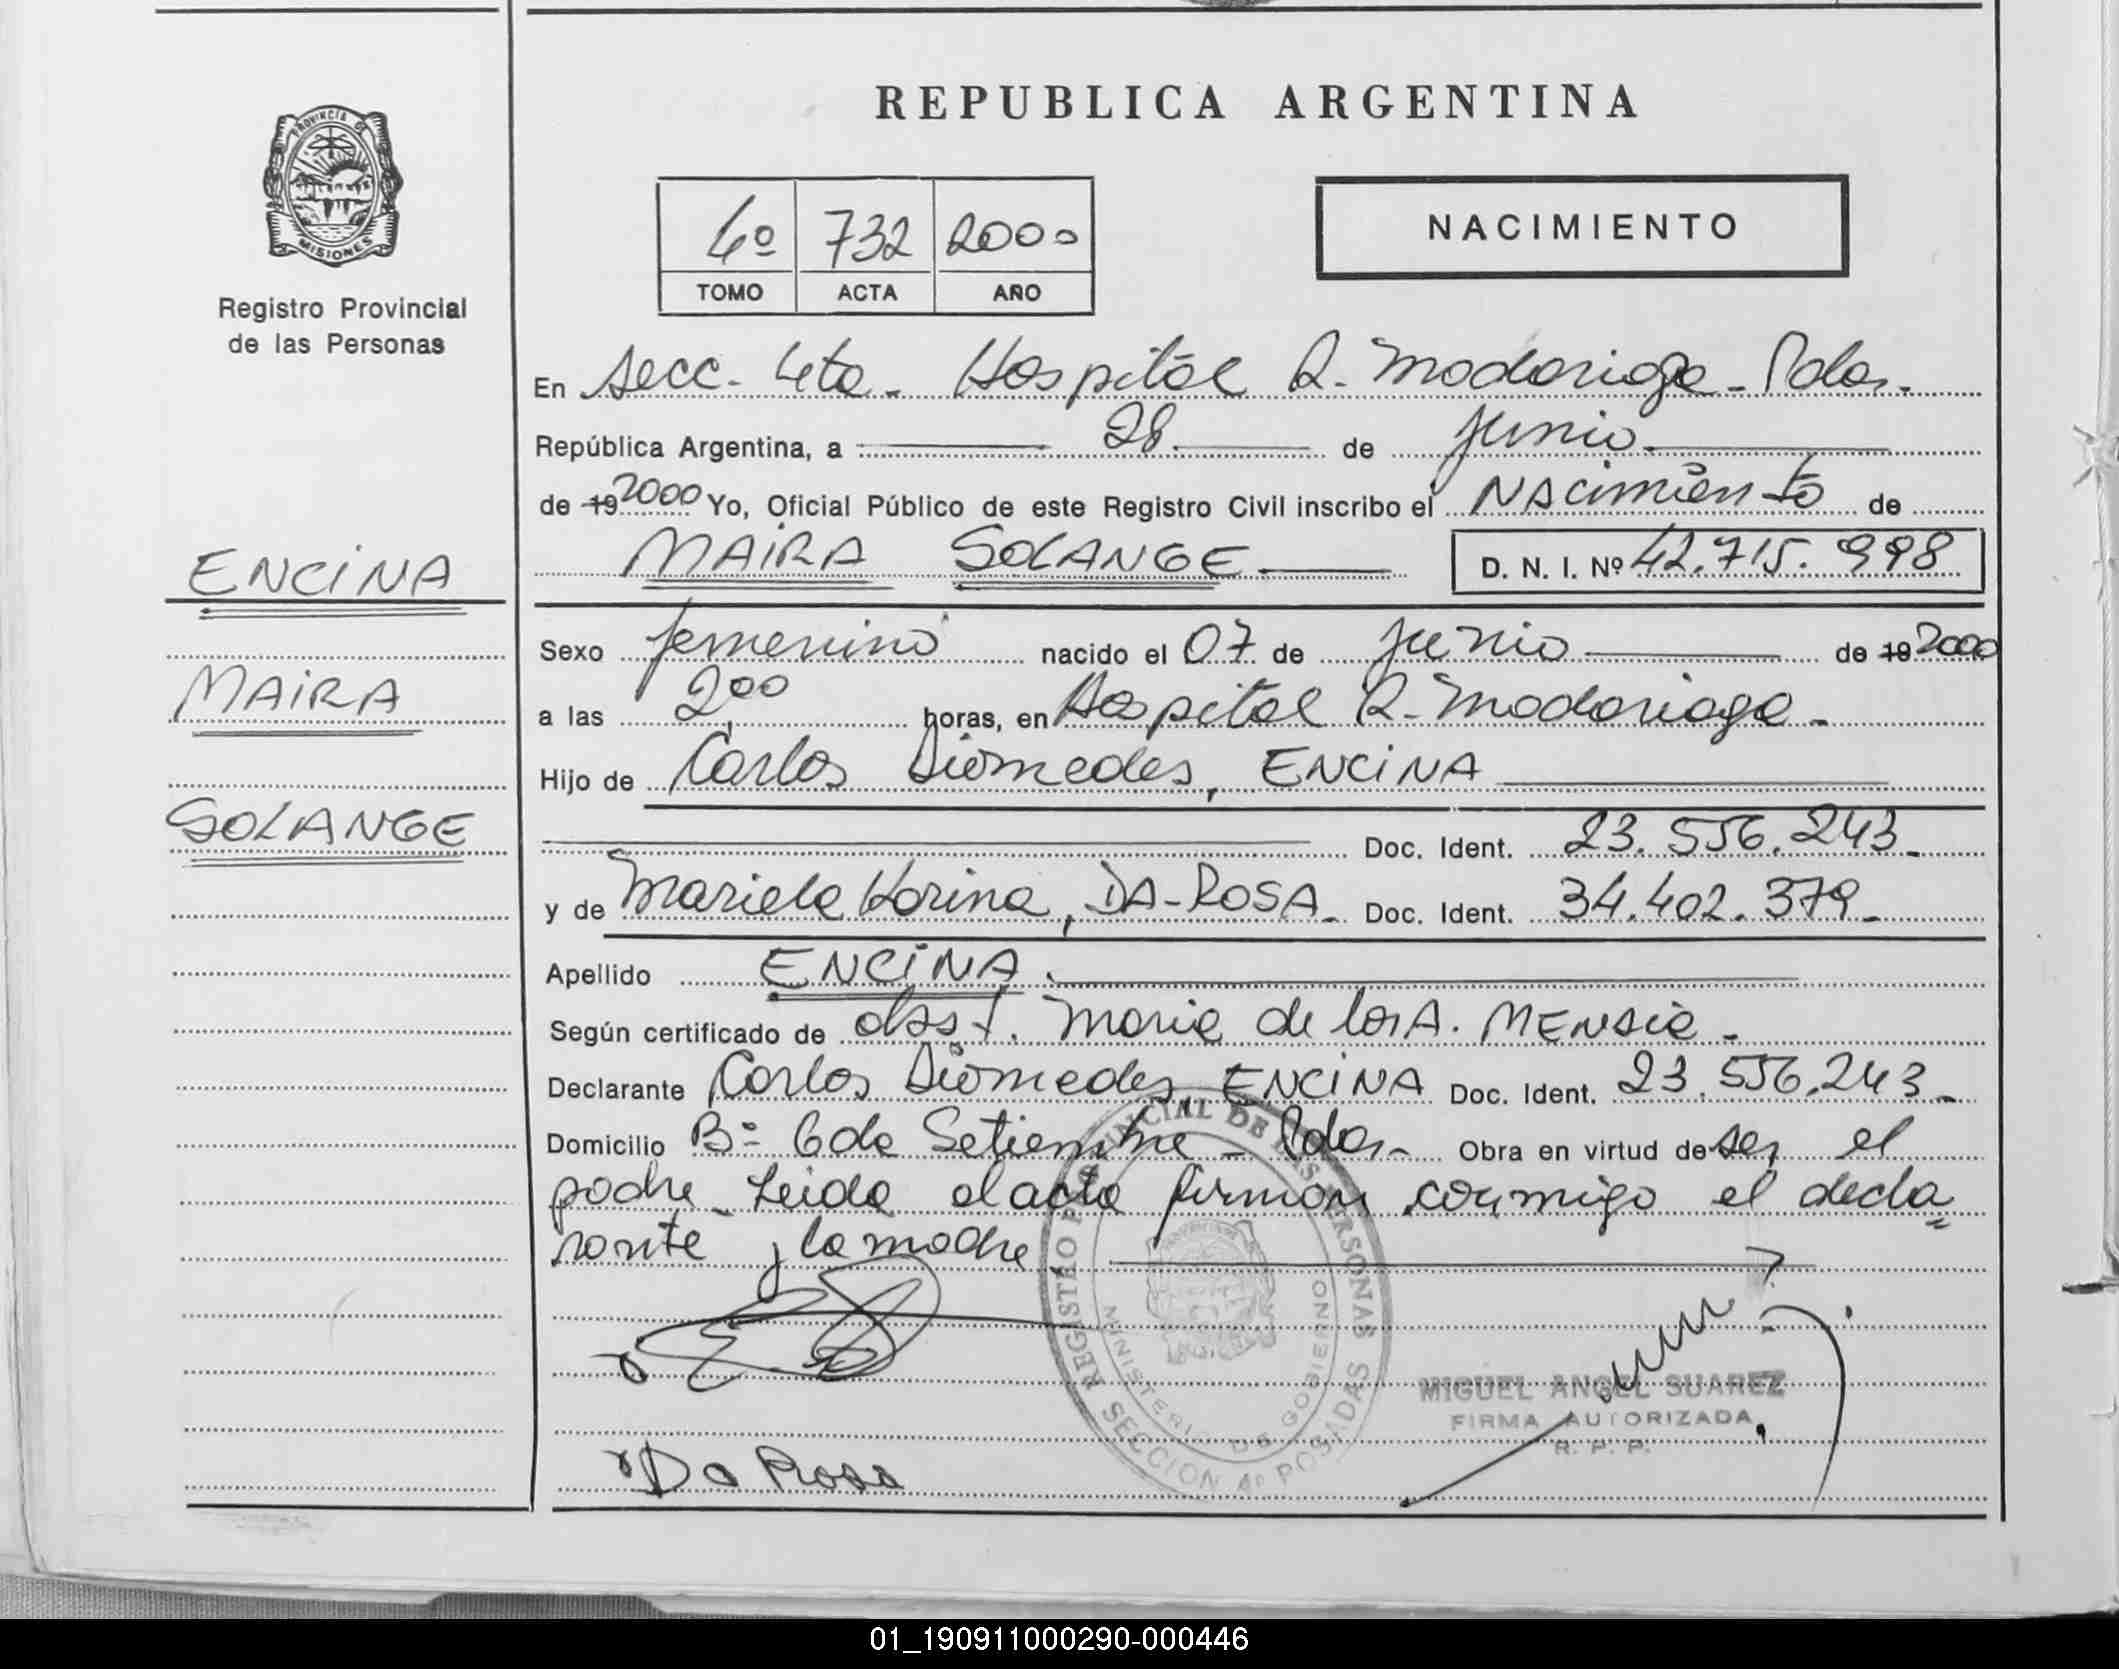 PROVINCIA DE
MISIONES
Registro Provincial
de las Personas
ENCINA
MAIRA
SOLANGE
REPUBLICA ARGENTINA
4º 732 2000
TOMO ACTA AÑO
NACIMIENTO
En Secc. 4ta - Hospital R. Madariaga - Pdas.
República Argentina, a 28 de junio
de 19 2000 Yo, Oficial Público de este Registro Civil inscribo el Nacimiento de
MAIRA SOLANGE D. N. I. Nº 42.715.998
Sexo femenino nacido el 07 de junio de 19 2000
a las 2,00 horas, en Hospital R. Madariaga -
Hijo de Carlos Diomedes, ENCINA
Doc. Ident. 23.556.243 -
y de Mariela Karina, DA-ROSA - Doc. Ident. 34.402.379 -
Apellido ENCINA.
Según certificado de obst. Maria de los A. -
Declarante Carlos Diomedes, ENCINA Doc. Ident. 23.556.243 -
Domicilio Bº 6 de Setiembre - Pdas - Obra en virtud de ser el
padre - Leida el acta firman conmigo el decla=
rante y la madre
REGISTRO PROVINCIAL DE LAS PERSONAS
MINISTERIO DE GOBIERNO
SECCION 4º POSADAS
MIGUEL ANGEL SUAREZ
FIRMA AUTORIZADA
R. P. P.
Da Rosa
01_190911000290-000446